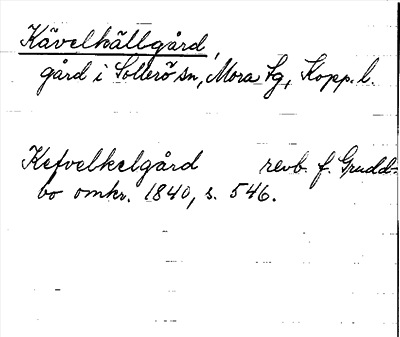 Kävelkällgård,
gård i Sollerö sn, Mora tg, Kopp. l.
Kefvelkelgård revb. f. Grudd-
bo omkr. 1840, s. 546.